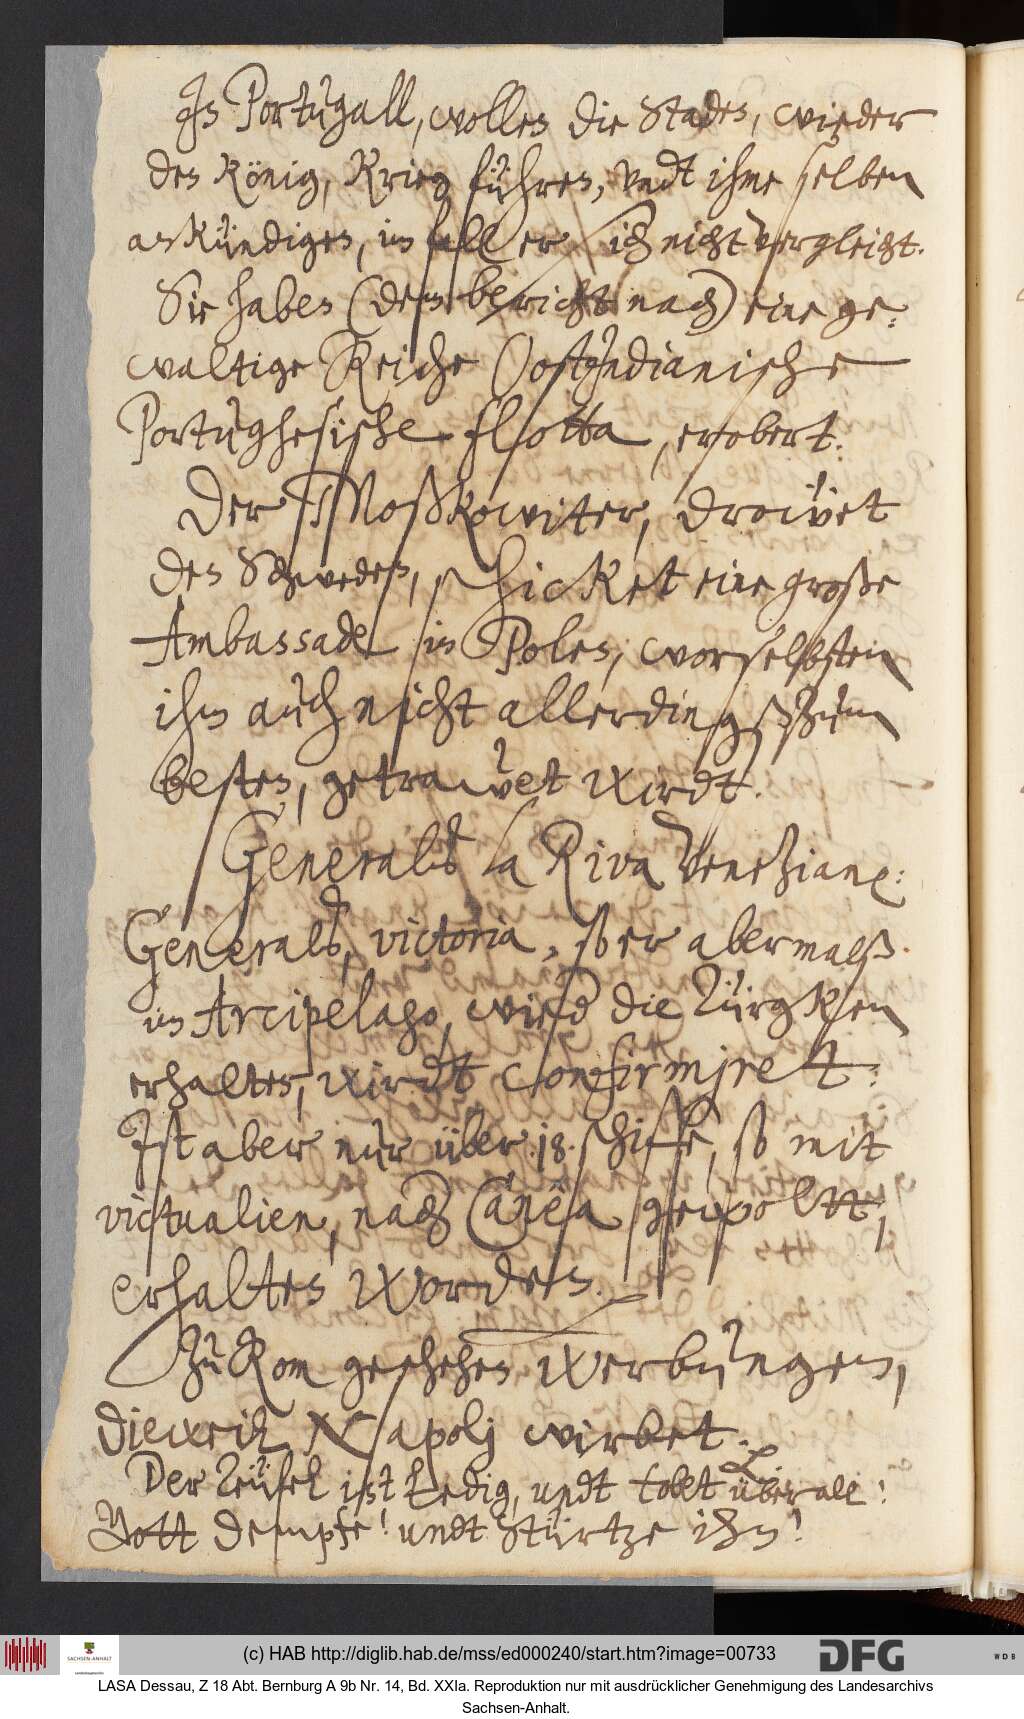 In Portugall, wollen die Staden, wieder
den König, Krieg führen, undt ihme selben
ankündigen, im fall er sich nicht vergleicht.
Sie haben (dem bericht nach) eine ge-
waltige Reiche Oostjndianische
Portughesische flotta, erobert.
Der Moßkowiter, drowet
den Schweden, schicket eine große
Ambassade in Polen, worselbsten
ihm auch nicht allerdingß zum
besten, getrawet wirdt.
Generalß la Riva Venezianer:
Generalß, victoria, so er abermalß
im Arcipelago, wied die Türgken
erhalten, wirdt confirmjrett:
Ist aber nur über .18. schiffe, so mit
victualien, nach Canéa gewoltt,
erhalten worden.
Zu Rom geschehen werbungen,
dieweil Napolj wirbet.
Der Teüfel ist Ledig, undt tobet überall!
Gott dempfe! undt stürtze ihn!
(c) HAB http://diglib.hab.de/mss/ed000240/start.htm?image=00733
SACHSEN-ANHALT
DFG
WDB
LASA Dessau, Z 18 Abt. Bernburg A 9b Nr. 14, Bd. XXIa. Reproduktion nur mit ausdrücklicher Genehmigung des Landesarchivs
Sachsen-Anhalt.